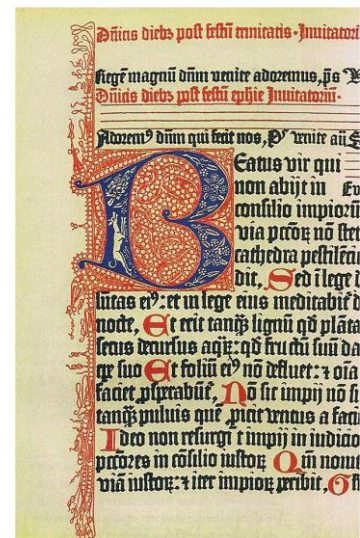 Dn̄icis diebꝫ post festū trinitatis · Inuitatori
Regē magnū dn̄m venite adoremus, p̄s V
Dn̄icis diebꝫ post festū ephie Inuitatoriū ·
Adorem⁹ dn̄m qui fecit nos, P̄s venite an̄ S
Beatus vir qui
non abijt in Ev
consilio impioꝝ
via pctōꝝ nō stet
cathedra pestilēci
dit, Sed ī lege d
lūtas ei⁹: et in lege eius meditabit̄ d
nocte, Et erit tanqꝫ lignū qd̄ plāta
secus decursus aqꝝ: qd̄ fructū suū da
tp̄e suo Et foliū ei⁹ nō defluet: ⁊ oīa
faciet ꝓsperabūt̄, Nō sic impij nō si
tanqꝫ puluis quē ꝓicit ventus a faci
Ideo non resurgt̄ impij in iudicio
pctōres in cōsilio iustoꝝ Qm̄ nouit
viā iustoꝝ: ⁊ iter impioꝝ peribit, G